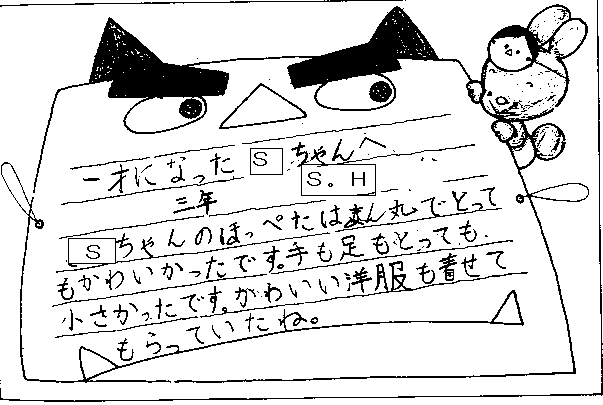 一才になった S ちゃんへ
三年 S.H
S ちゃんのほっぺたはまん丸でとって
もかわいかったです。手も足もとっても
小さかったです。かわいい洋服も着せて
もらっていたね。